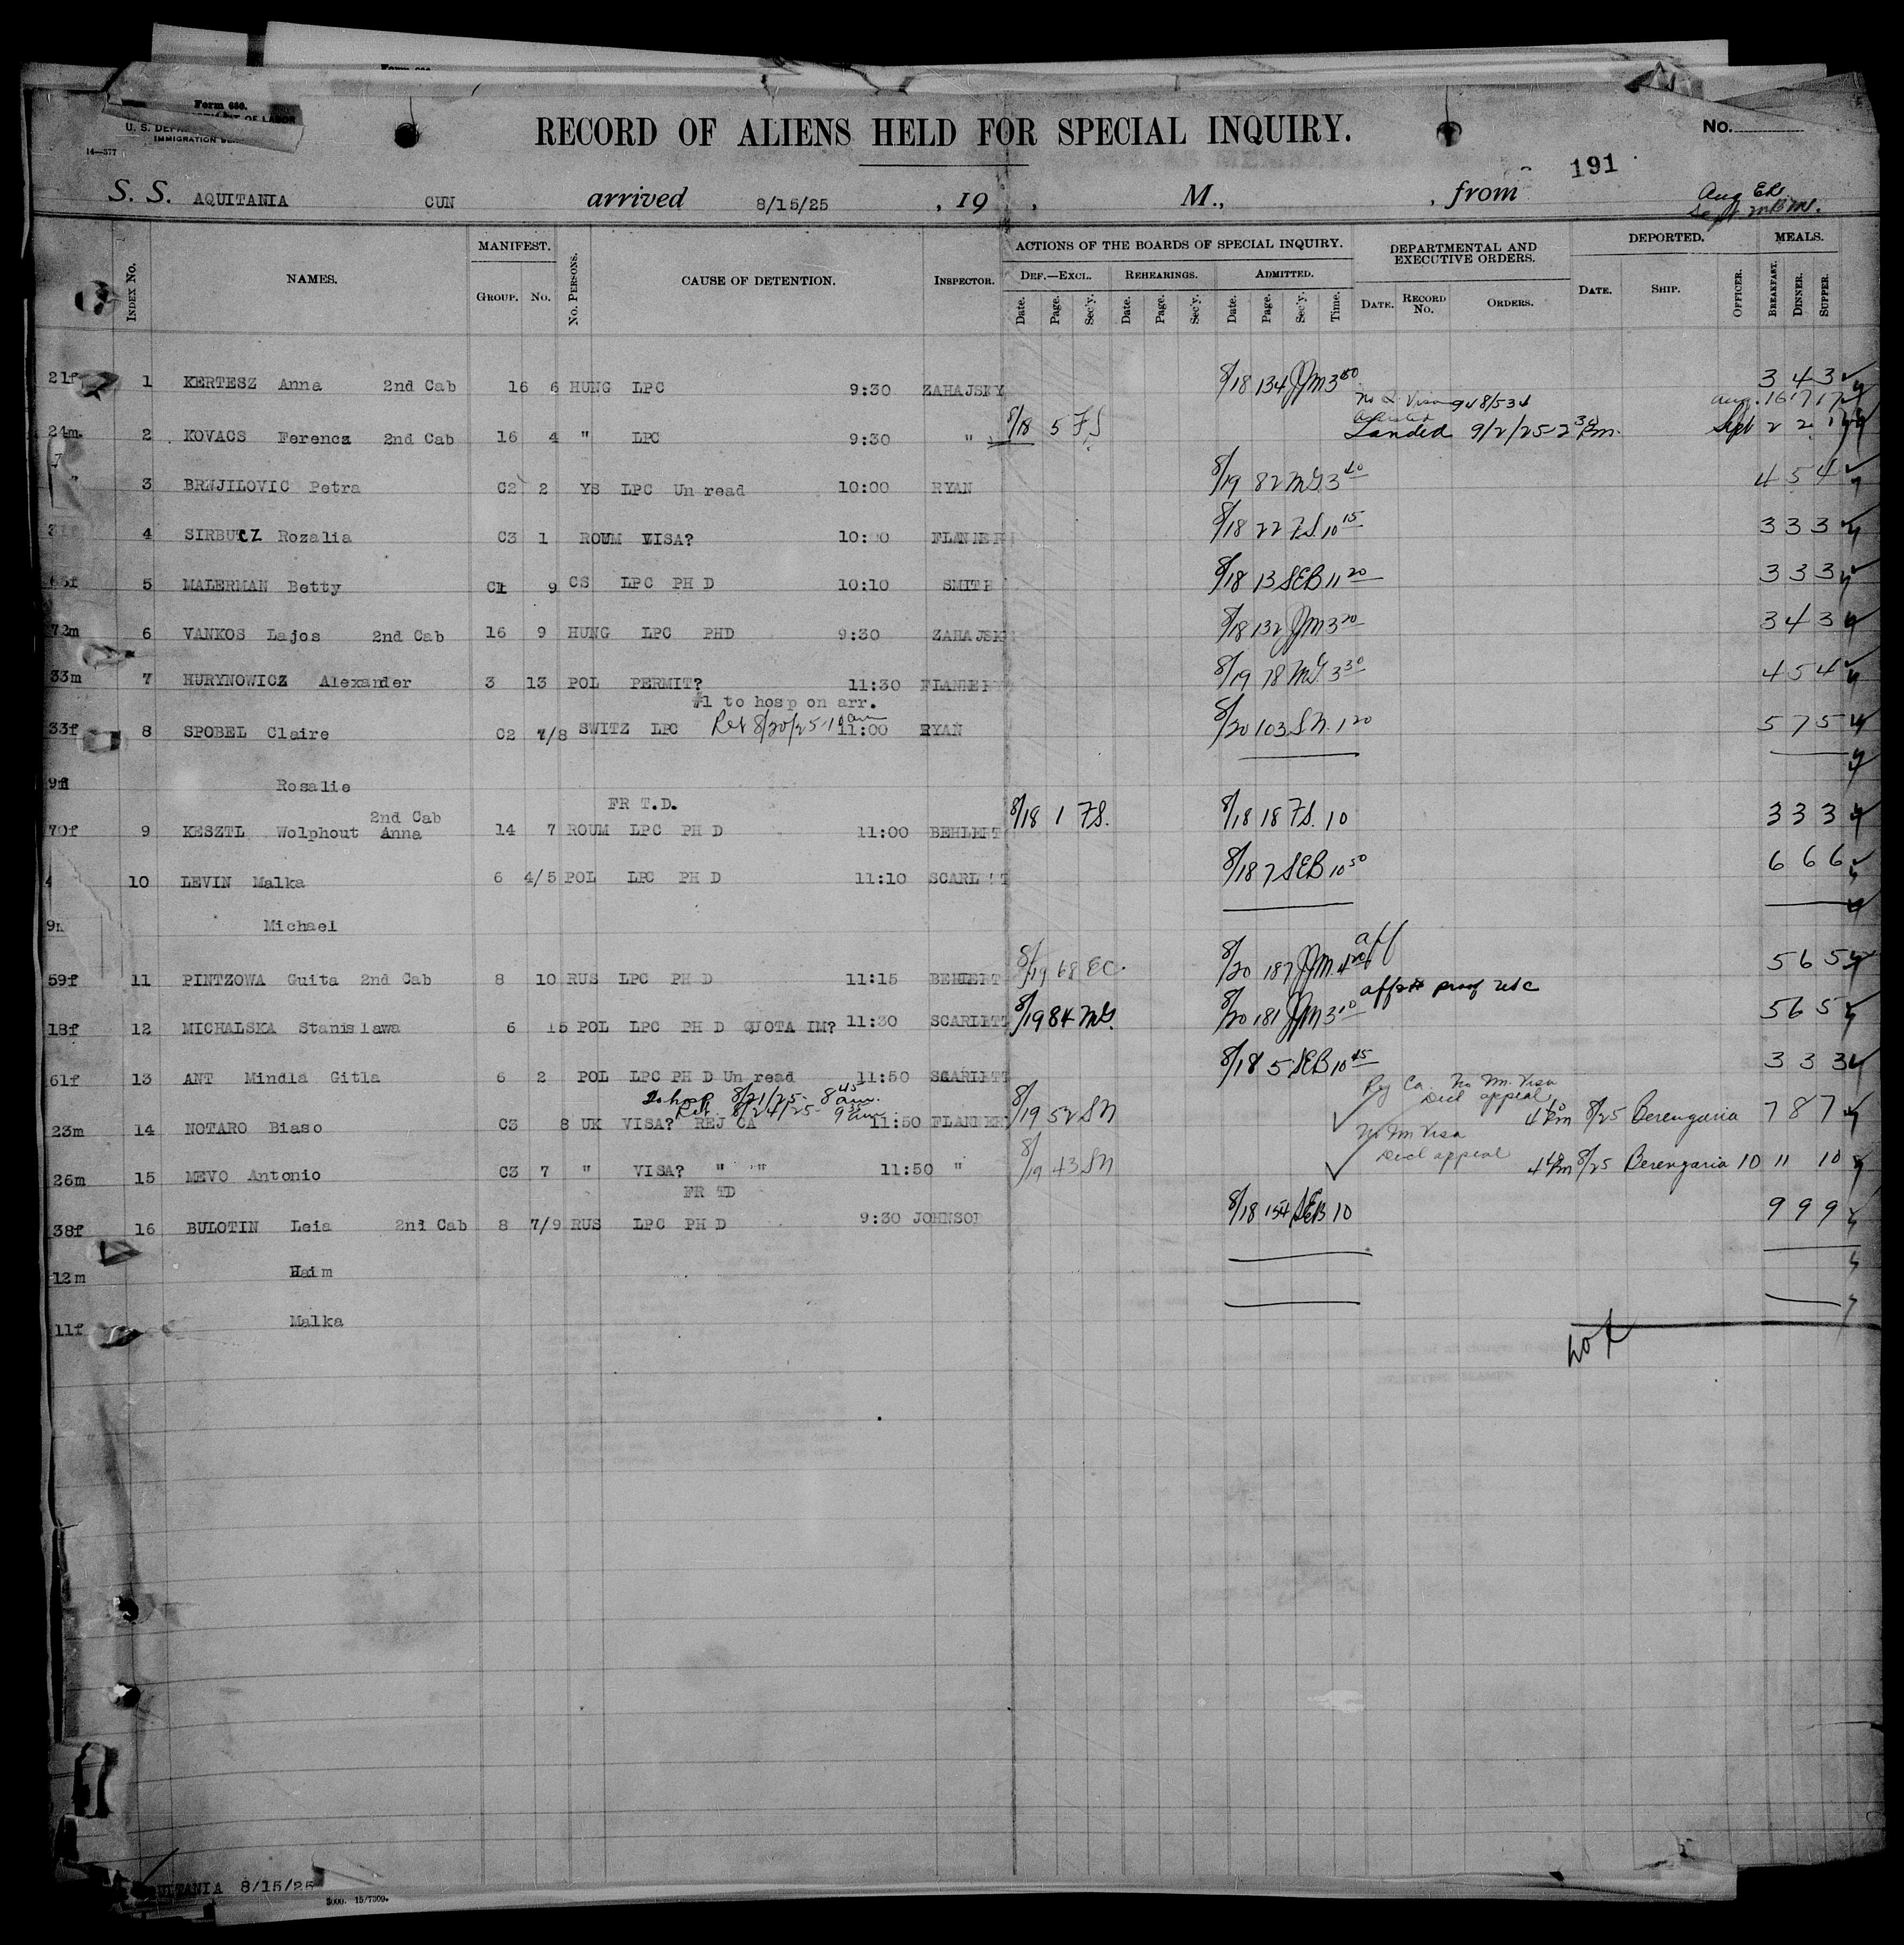 Form 666.
OF LABOR
U. S. DEPA
IMMIGRATION
14—377
RECORD OF ALIENS HELD FOR SPECIAL INQUIRY.
No.
191
S. S. AQUITANIA CUN arrived 8/15/25 , 19 , M., , from
Aug ER
Sept
INDEX NO. NAMES. MANIFEST. GROUP. NO. NO. PERSONS. CAUSE OF DETENTION. INSPECTOR.
ACTIONS OF THE BOARDS OF SPECIAL INQUIRY. DEPARTMENTAL AND EXECUTIVE ORDERS. DEPORTED. MEALS.
DEF.—EXCL. REHEARINGS. ADMITTED.
Date. Page. Sec'y. Date. Page. Sec'y. Date. Page. Sec'y. Time. DATE. RECORD No. ORDERS. DATE. SHIP. OFFICER. BREAKFAST. DINNER. SUPPER.
21f 1 KERTESZ Anna 2nd Cab 16 6 HUNG LPC 9:30 ZAHAJSKY 8/18 134 JJM 3 00 3 4 3
No Visa 948/534 Aug. 16 17 17
24m 2 KOVACS Ferencz 2nd Cab 16 4 " LPC 9:30 " 8/18 5 FS Landed 9/2/25 2 30 Pm. Sept 2 2 1
" 3 BRNJILOVIC Petra C2 2 YS LPC Un read 10:00 RYAN 8/19 82 MG 3 40 4 5 4
4 SIRBUCZ Rozalia C3 1 ROUM VISA? 10:00 FLANNER 8/18 22 FS. 10 15 3 3 3
5 MALERMAN Betty C1 9 CS LPC PH D 10:10 SMITH 8/18 13 SEB 11 20 3 3 3
72m 6 VANKOS Lajos 2nd Cab 16 9 HUNG LPC PHD 9:30 ZAHAJSK 8/18 132 JJM 3 20 3 4 3
33m 7 HURYNOWICZ Alexander 3 13 POL PERMIT? 11:30 FLANNER 8/19 78 MG. 3 30 4 5 4
#1 to hosp on arr.
33f 8 SPOBEL Claire C2 7/8 SWITZ LPC Ret 8/20/25-10 am 11:00 RYAN 8/20 103 SN. 1 20 5 7 5
9f Rosalie
FR T.D.
2nd Cab
70f 9 KESZTL Wolphout Anna 14 7 ROUM LPC PH D 11:00 BEHLERT 8/18 1 FS. 8/18 18 FS. 10 3 3 3
4 10 LEVIN Malka 6 4/5 POL LPC PH D 11:10 SCARLETT 8/18 7 SEB 10 50 6 6 6
9m Michael
aff
59f 11 PINTZOWA Guita 2nd Cab 8 10 RUS LPC PH D 11:15 BEHLERT 8/19 68 EC. 8/20 187 JJM. 4 20 5 6 5
aff proof
18f 12 MICHALSKA Stanislawa 6 15 POL LPC PH D QUOTA IM? 11:30 SCARLETT 8/19 84 MG. 8/20 181 JJM 3 10 5 6 5
61f 13 ANT Mindla Gitla 6 2 POL LPC PH D Un read 11:50 SCARLETT 8/18 5 SEB 10 45 3 3 3
To hosp 8/21/25- 8 45 am. Rej Ca. No Im. Visa
Ret. 8/24/25- 9 am Decl appeal
23m 14 NOTARO Biaso C3 8 UK VISA? REJ CA 11:50 FLANNER 8/19 52 SN 8/25 Berengaria 7 8 7
No Im Visa
Decl appeal
26m 15 MEVO Antonio C3 7 " VISA? " " 11:50 " 8/19 43 SN 8/25 Berengaria 10 11 10
FR TD
38f 16 BULOTIN Leia 2nd Cab 8 7/9 RUS LPC PH D 9:30 JOHNSON 8/18 154 SEB 10 9 9 9
12m Haim
11f Malka
AQUITANIA 8/15/25
5000. 15/7309.